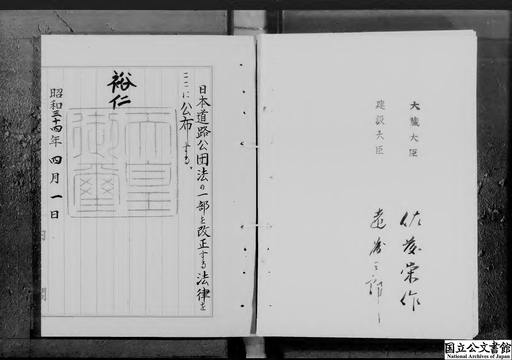 日本道路公団法の一部を改正する法律を
ここに公布する。
裕仁
天皇御璽
昭和三十四年四月一日
大蔵大臣 佐藤栄作
建設大臣 遠藤三郎
国立公文書館
National Archives of Japan